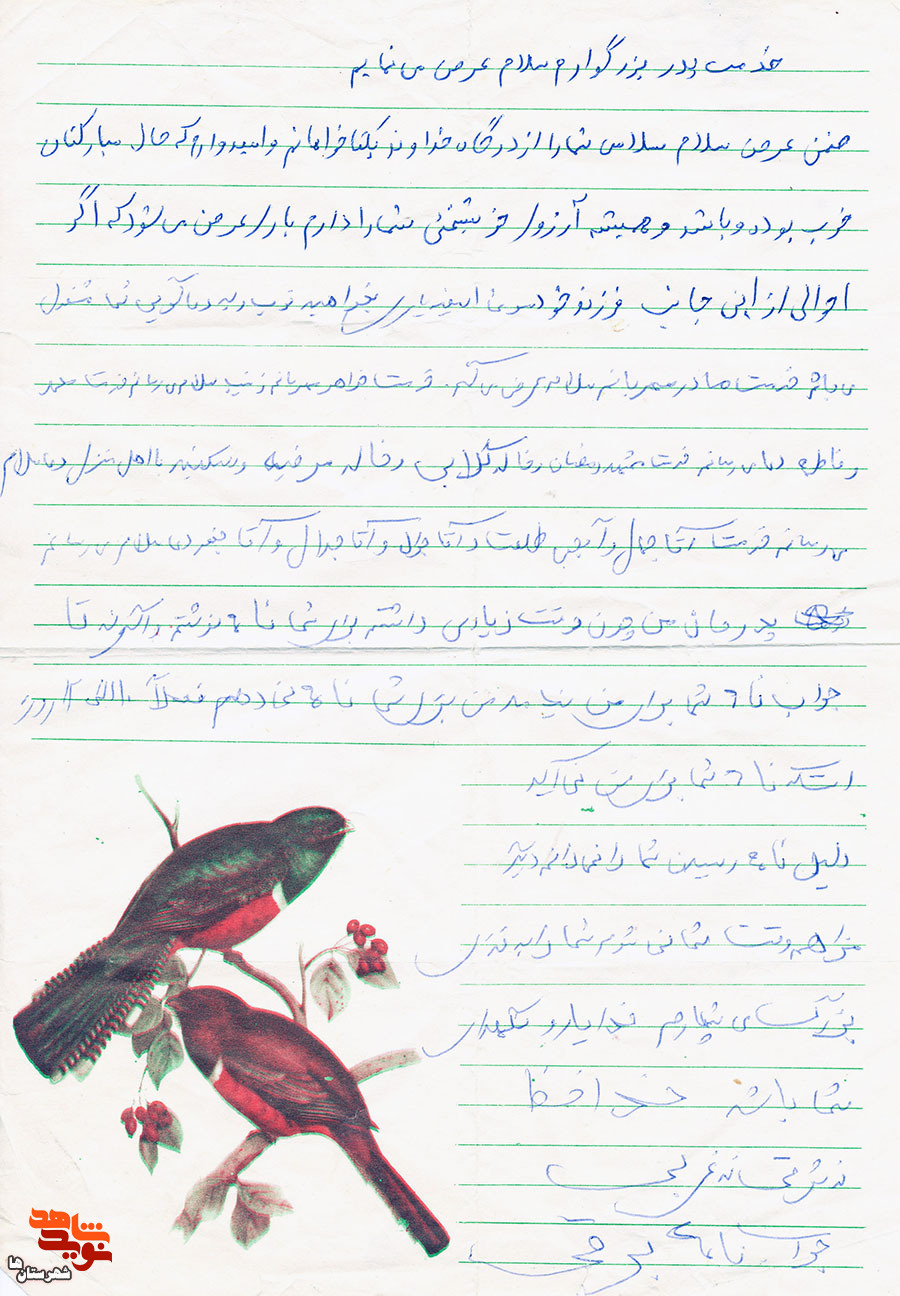 خدمت پدر بزرگوارم سلام عرض می نمایم
ضمن عرض سلام سلامتی شما را از درگاه خداوند یکتا خواهانم و امیدوارم که حال مبارکتان
خوب بوده و باشد و همیشه آرزوی خوشبختی شما را دارم باری عرض می شود که اگر
احوالی از این جانب فرزند خود بخواهید دعاگویی شما مشغول
می باشم خدمت مادر مهربانم سلام عرض می کنم خدمت خواهر مهربانم سلام می رسانم خدمت محمد
و فاطمه دعا می رسانم خدمت و خاله گلابی و خاله مرضیه و سکینه با اهل منزل دعا سلام
می رسانم خدمت آقا جمال و آبجی طلعت و آقا جلال و آقا جعفر دعا سلام می رسانم
پدر جان من چون وقت زیادی داشته برای شما نامه نوشتم و اکنون تا
جواب نامه شما برای من نیاید من برای شما نامه نمی دهم فعلاً الان 12 روز
است که نامه شما برای من نمی آید
دلیل نامه رسیدن شما را نمی دانم دیگر
وقت شما نمی شوم شما را به خدای
بزرگ می سپارم خدا یار و نگهدار
شما باشد خدا حافظ

جواب نامه
نوید شاهد
شهرستان ها